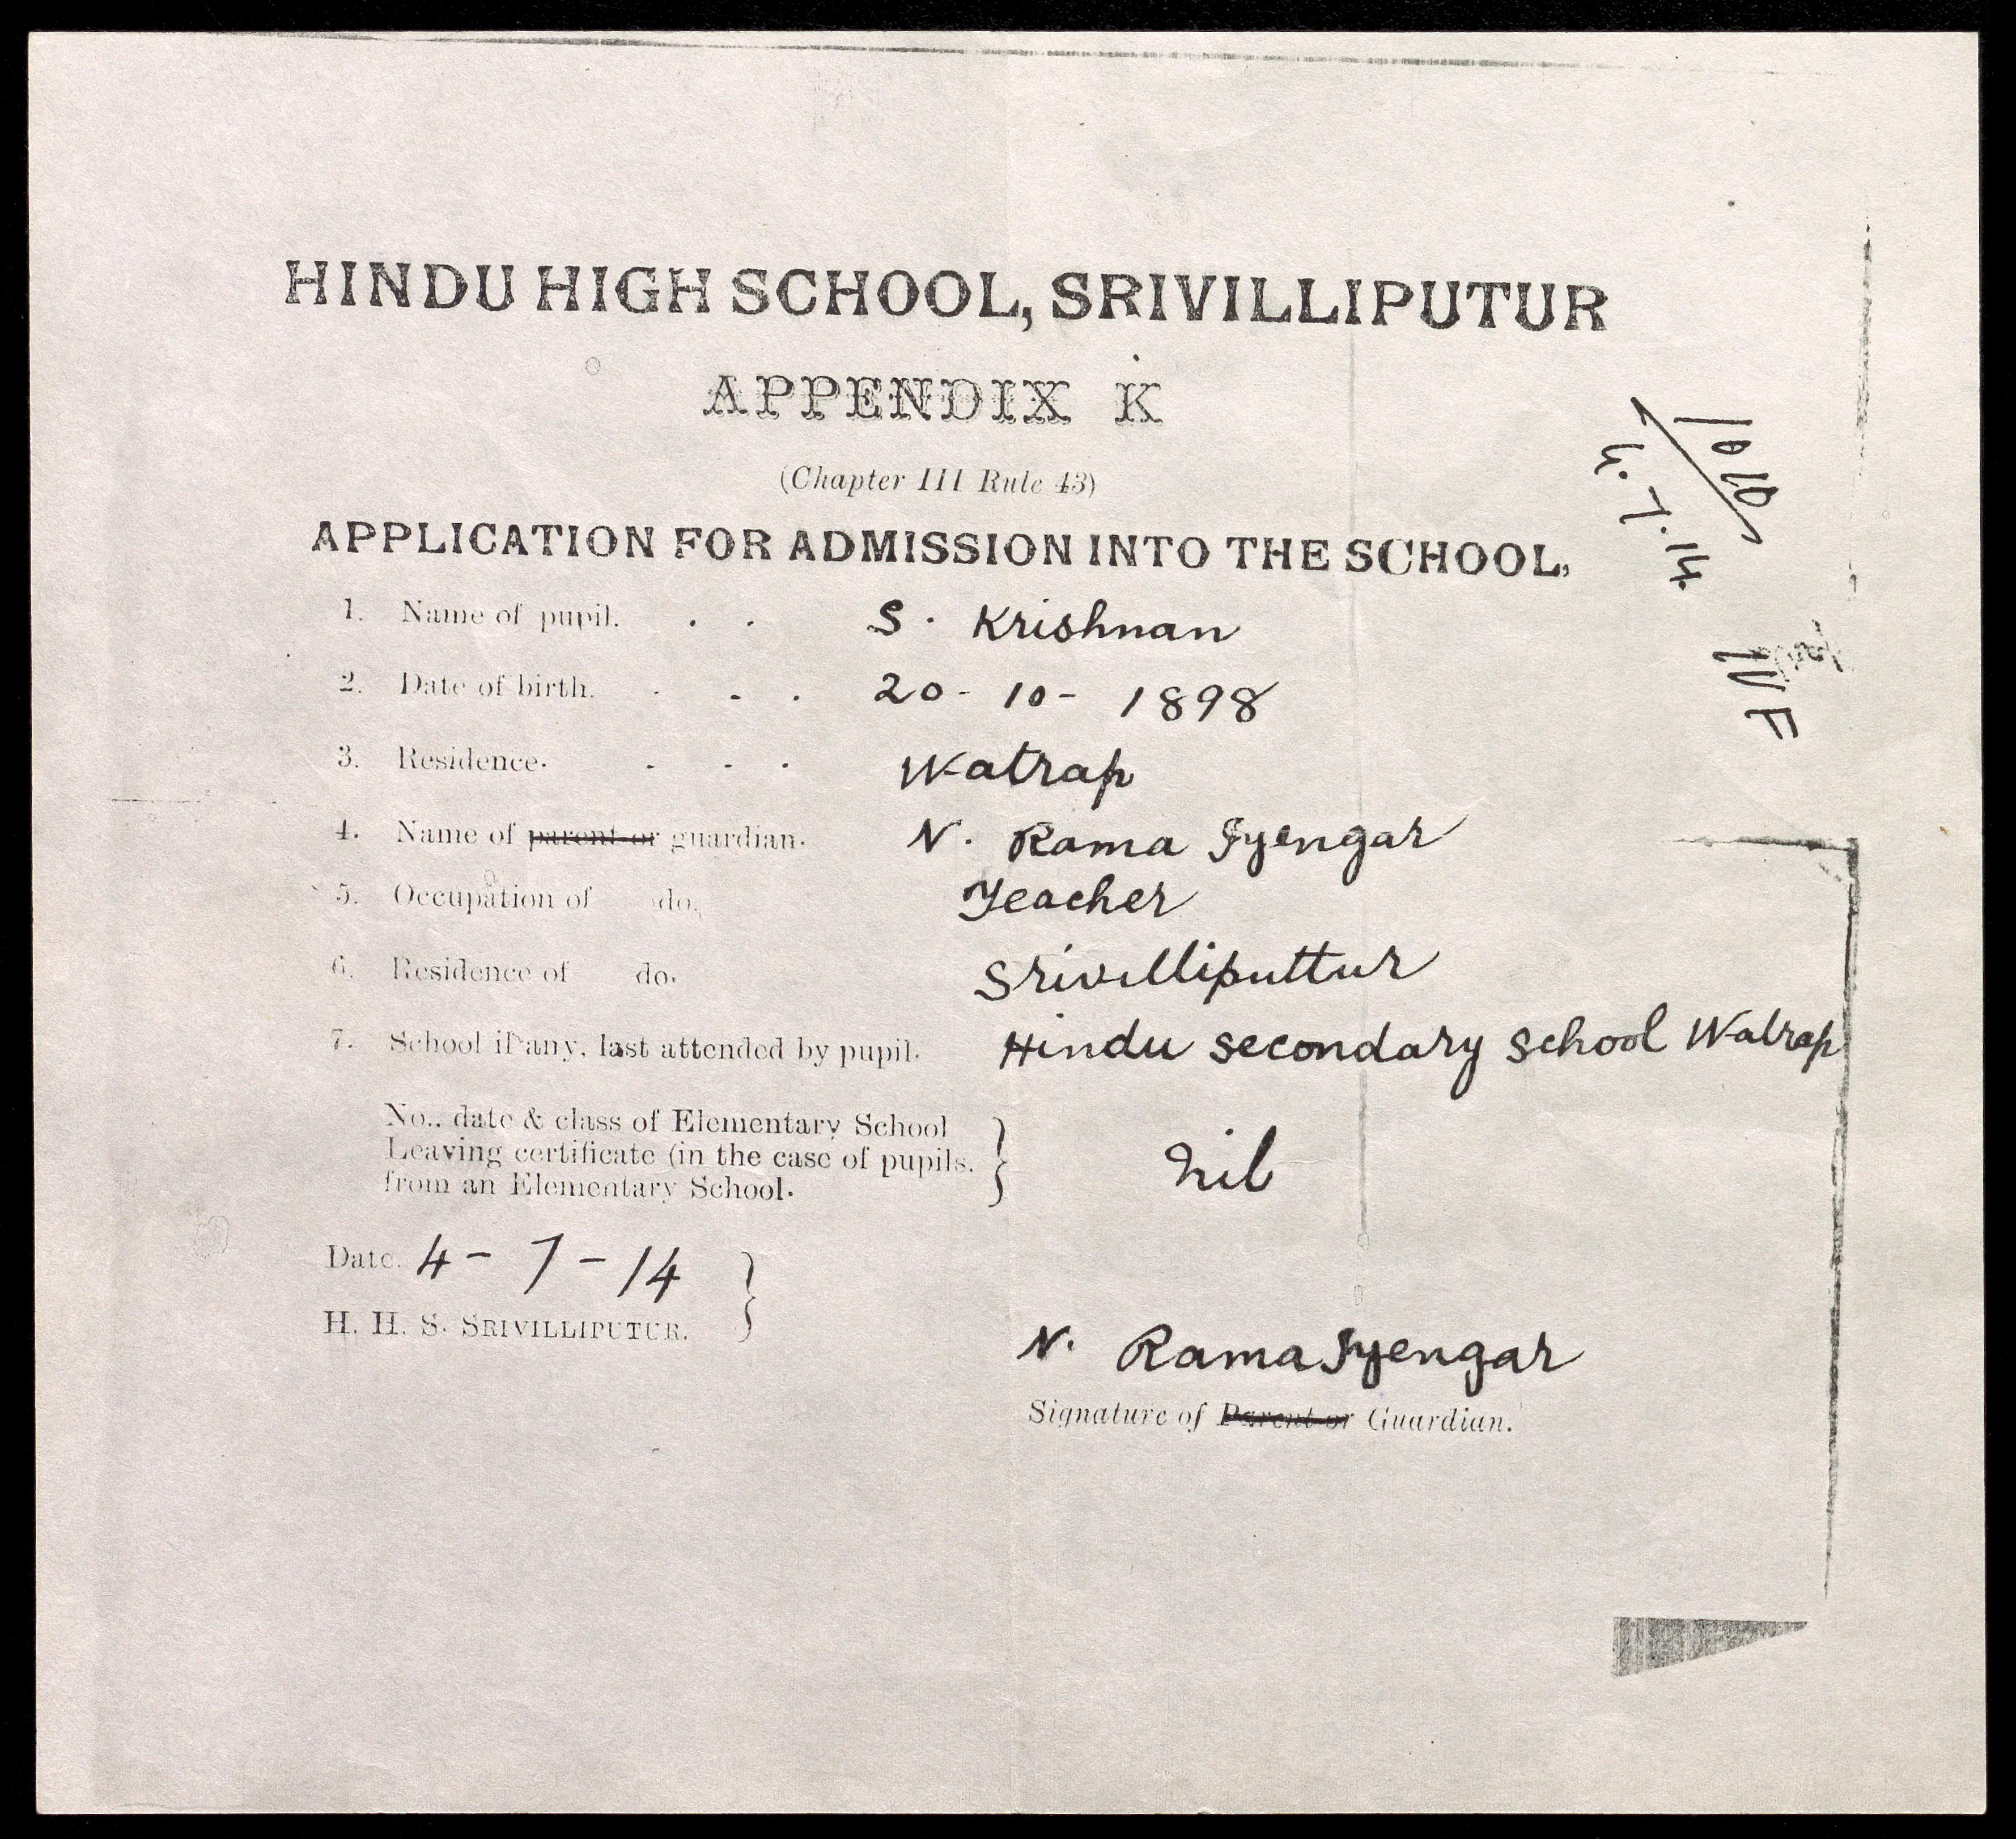 HINDU HIGH SCHOOL, SRIVILLIPUTUR
APPENDIX K
(Chapter III Rule 43)
APPLICATION FOR ADMISSION INTO THE SCHOOL,
1. Name of pupil. . . S. Krishnan
2. Date of birth. . . . 20-10-1898
3. Residence. . . . Watrap
4. Name of parent or guardian. N. Rama Iyengar
5. Occupation of do. Teacher
6. Residence of do. Srivilliputtur
7. School if any, last attended by pupil. Hindu secondary school Watrap
No., date & class of Elementary School
Leaving certificate (in the case of pupils.
from an Elementary School. } nil
Date. 4-7-14
H. H. S. SRIVILLIPUTUR.
N. Rama Iyengar
Signature of Parent or Guardian.
4.7.14
IV F